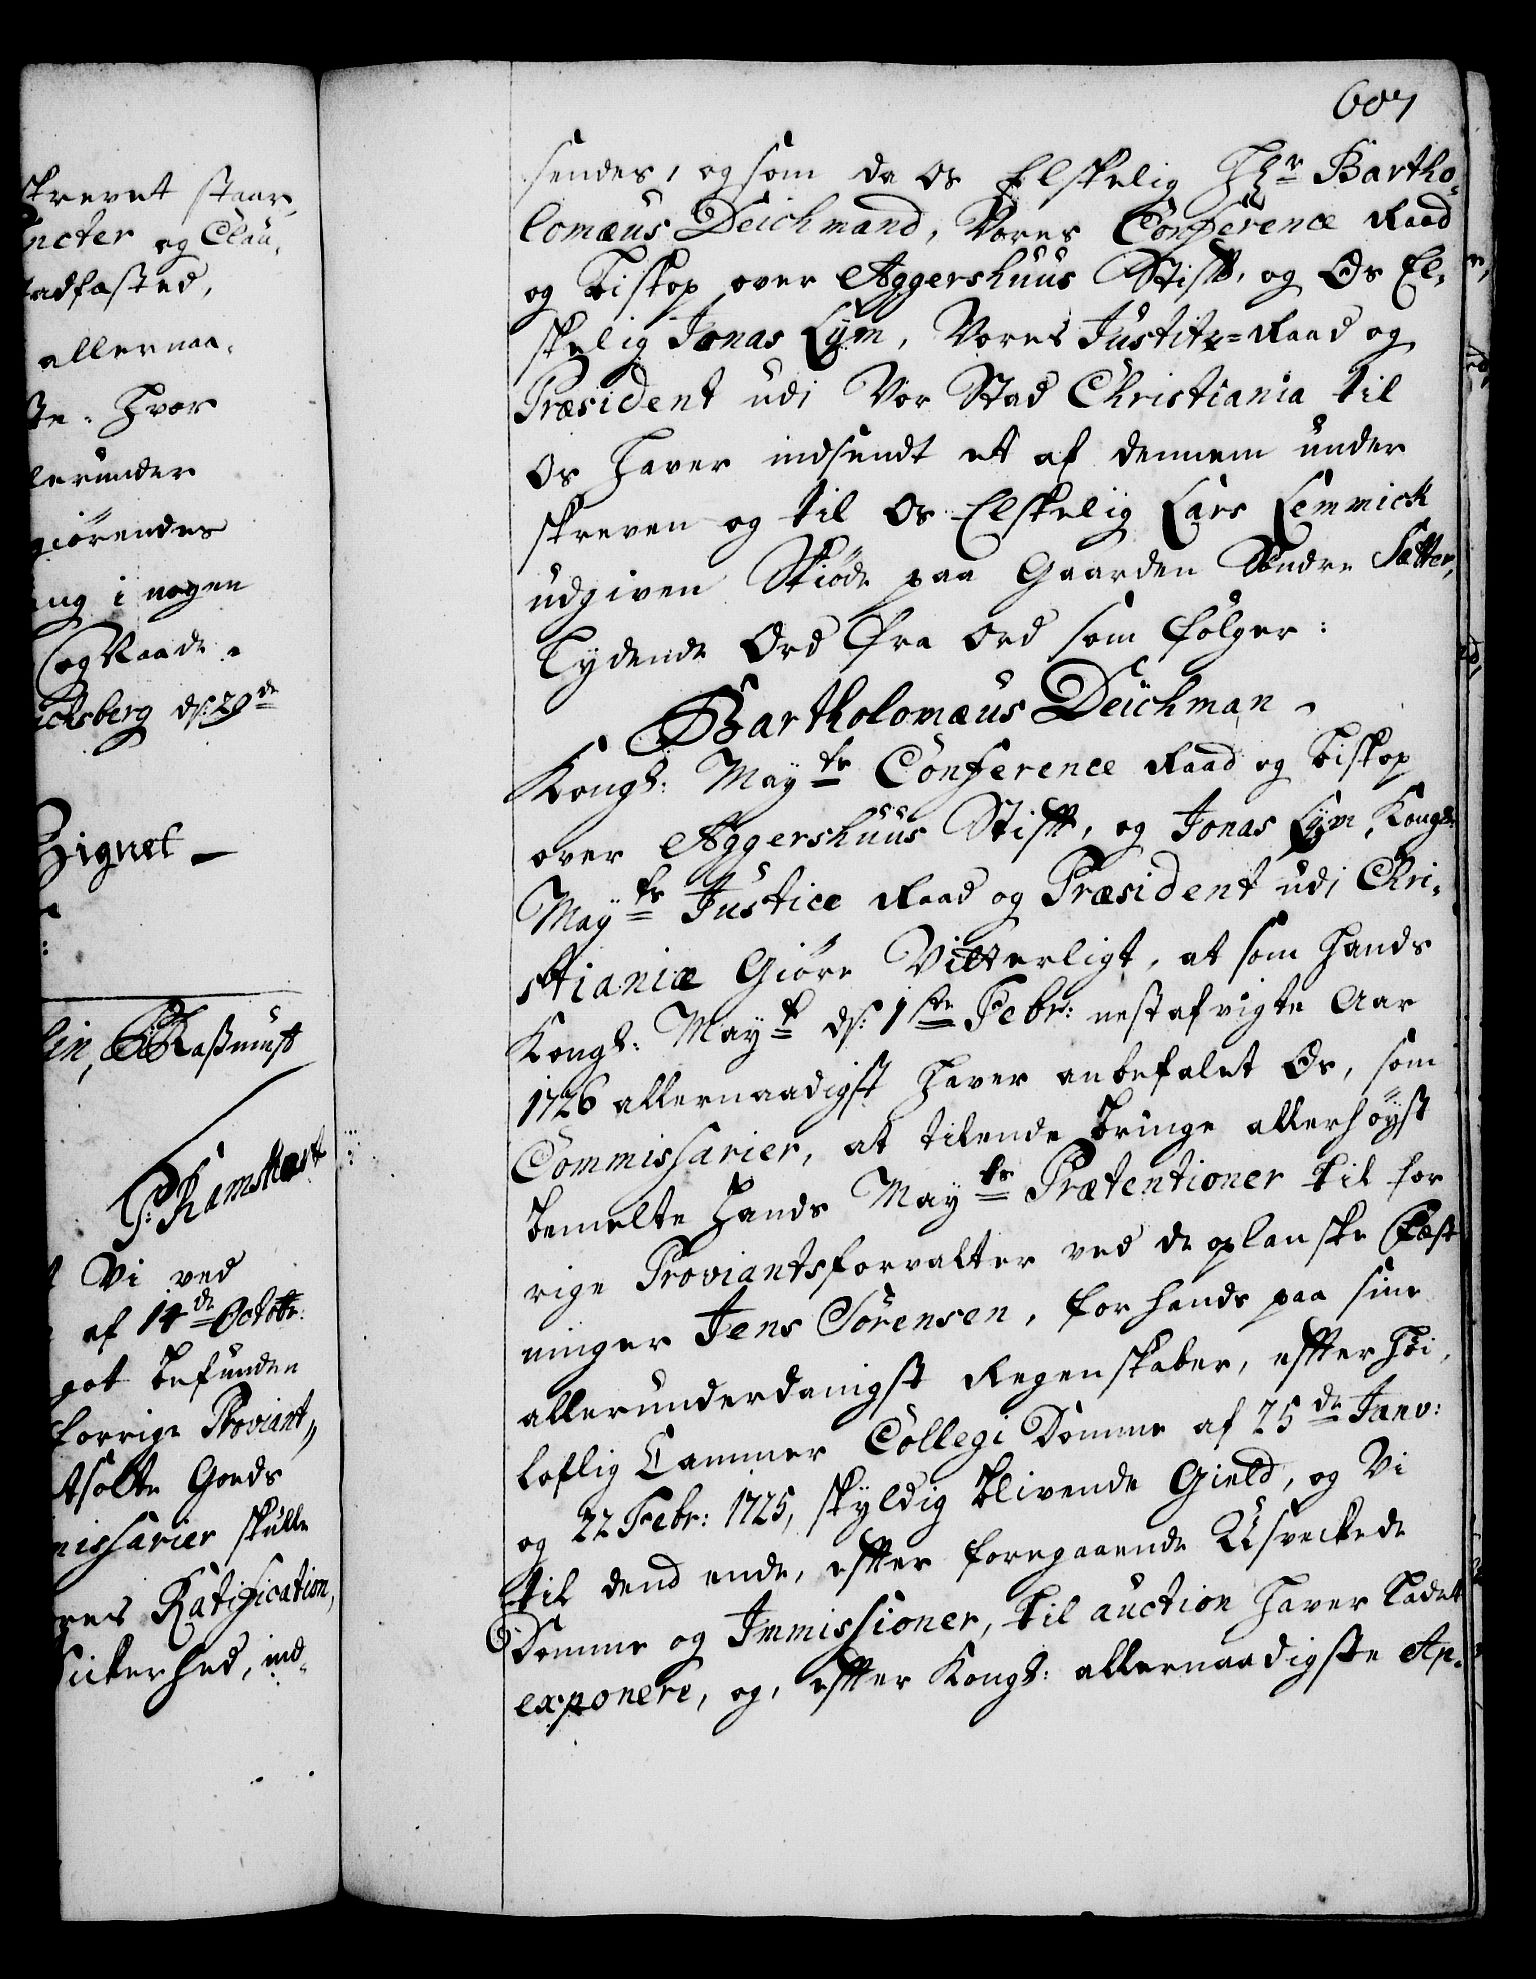 skrevet staar,
ncter og Clau-
tadfæsted,
allernaa-
Hvor
lerunder
giørendes
ng i nogen
og Raade.
ichsberg ds: 29de
Zignet
lin,
Vi ved
af 14de Octobr:
got befunden
forrige Proviant,,
tsolte Goeds
missarier skulle
res Ratification,
Sickerhed, ind-
607
sendes, og som da os Elskelig Hr Bartho-
lomæus Deichmand, Vores Conference Raad
og Biskop over Aggershuus Stifft, og Os El-
skelig Jonas Lÿm, Vores Justitz=Raad og
Præsident udi Vor Stad Christiania til
Os haver indsendt et af dennem under
skreven og til Os Elskelig Lars Lemmick
udgiven Skiøde paa Gaarden Søndre Sætter,
Lydende Ord fra Ord som følger:
Bartholomæus Deichman
Kongl: Maÿts Conference Raad og Biskop
over Aggershuus Stifft, og Jonas Lÿm, Kongl:
Mayts Justice Raad og Præsident udi Chri-
stianiæ Giøre Vitterligt, at som Hands
Kongl: Mayt ds: 1ste Febr: nestafvigte Aar
1726 allernaadigst haver anbefalet Os, som
Commissarier, at tilende bringe allerhöÿst
bemelte Hands Mayts Prætentioner til for
rige Proviantsforvalter ved de oplanske Fæst
ninger Jens Sørensen, for hands paa sine
allerunderdanigst Regenskaber, effter Høi-
loflig Cammer Collegi Domme af 25de Janv:
og 22 Febr: 1725, skyldig blivende Gield, og Vi
til dend ende, effter foregaaende Usveckede
Domme og Immissioner, til auction haver ladet
exponere, og, effter Kongl: allernaadigste Ap-